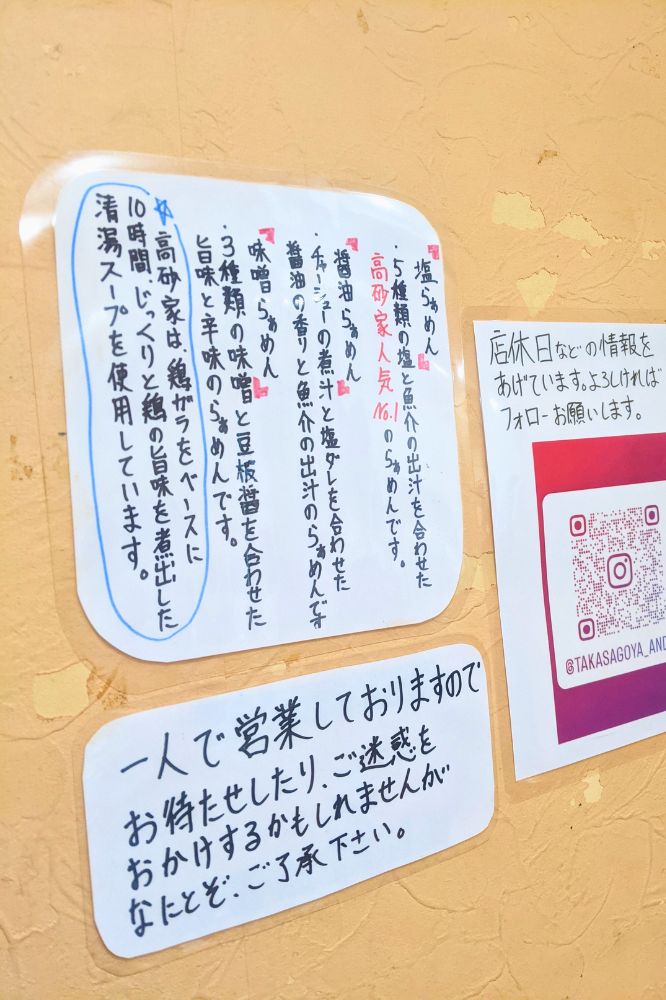 塩らぁめん
・5種類の塩と魚介の出汁を合わせた
高砂家人気No.1のらぁめんです。
醤油らぁめん
・チャーシューの煮汁と塩ダレを合わせた
醤油の香りと魚介の出汁のらぁめんです
味噌らぁめん
・3種類の味噌と豆板醤を合わせた
旨味と辛味のらぁめんです。
☆高砂家は、鶏ガラをベースに
10時間、じっくりと鶏の旨味を煮出した
清湯スープを使用しています。
店休日などの情報を
あげています。よろしければ
フォローお願いします。
@TAKASAGOYA_AND
一人で営業しておりますので
お待たせしたり、ご迷惑を
おかけするかもしれませんが
なにとぞ、ご了承下さい。